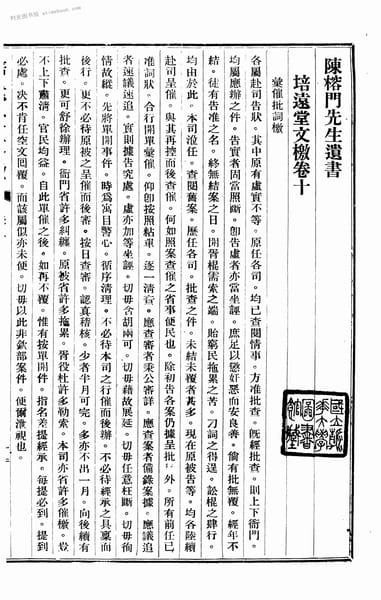 陳榕門先生遺書
培遠堂文檄卷十
彙催批詞檄
各屬赴司告狀。其中原有虛實不等。原任各司。均已查閱情事。方准批查。旣經批查。則上下衙門。
均屬應辦之件。告實者固當照斷。卽告虛者亦當坐誣。庶足以懲奸惡而安良善。倘有批無覆。經年不
結。徒有告准之名。終無結案之日。開胥棍需索之端。貽窮民拖累之苦。刀詞之得逞。訟棍之肆行。
均由於此。本司涖任。查閱舊案。歷任各司。批查之件。未結未覆者甚多。現在原被告等。均各陸續
赴司呈催。與其再控而後查催。何如照案查催之省事便民也。除初告各案仍據呈批 外。所有前任已
准詞狀。合行開單彙催。仰卽按照粘單。逐一清查。應查審者秉公審詳。應查案者備錄案據。應議追
者速議速追。實則據告究處。虛亦加等坐誣。切毋含胡兩可。切毋藉故展延。切毋任意枉斷。切毋徇
情故縱。先將單開事件。時爲寓目警心。循序清理。不必待本司之行催而後辦。不必待經承之具稟而
後行。更不必待原被之呈催而後審。按日查審。認眞稽核。少者半月可完。多亦不出一月。向後續有
批查。更可舒徐辦理。衙門省許多糾纏。原被省許多拖累。胥役杜許多勒索。本司亦省許多催檄。豈
不上下肅清。官民均益。自此單催之後。如再不覆。惟有按單開件。指名差提經承。每提必到。提到
必處。決不肯任空文回覆。而該屬似亦未便。切毋以此非欽部案件。便爾泄視也。